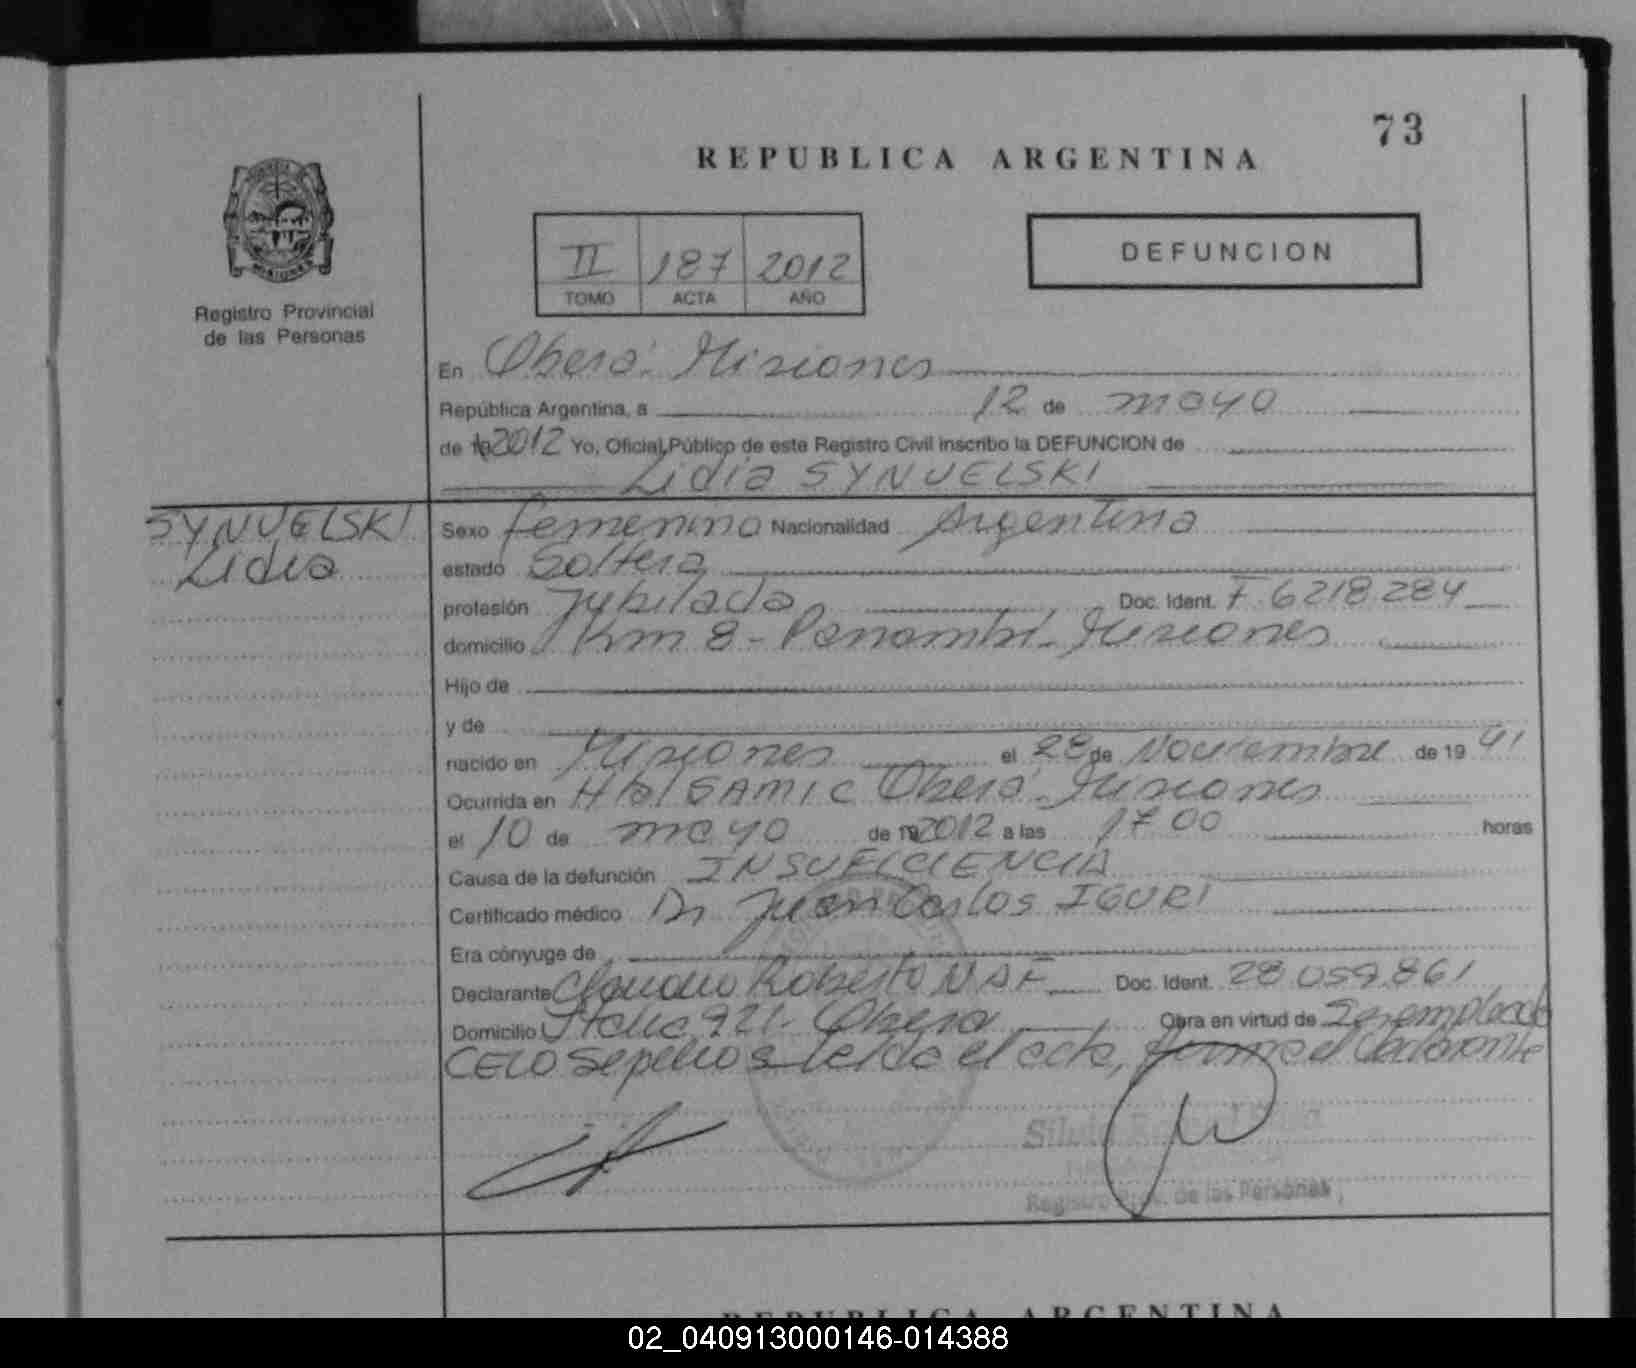 73
REPUBLICA ARGENTINA
DEFUNCION
II 187 2012
TOMO ACTA AÑO
Registro Provincial
de las Personas
En Oberá - Misiones
República Argentina, a 12 de mayo
de 19 2012 Yo, Oficial Público de este Registro Civil inscribo la DEFUNCION de
Lidia SYNUELSKI
SYNUELSKI
Lidia
Sexo femenino Nacionalidad Argentina
estado Soltera
profesión Jubilada Doc. Ident. F 6218284
domicilio Km 8 - Panambí - Misiones
Hijo de
y de
nacido en Misiones el 28 de Noviembre de 19 41
Ocurrida en Hptal SAMIC Oberá - Misiones
el 10 de mayo de 19 2012 a las 17 00 horas
Causa de la defunción INSUFICIENCIA
Certificado médico Dr Juan Carlos IGURI
Era cónyuge de
Declarante Claudio Roberto NAF Doc. Ident. 28 059.861
Domicilio Italia 921 - Oberá Obra en virtud de Ser empleado
CELO Sepelios Leída el acta, firma el declarante
Registro Prov. de las Personas
REPUBLICA ARGENTINA
02_040913000146-014388